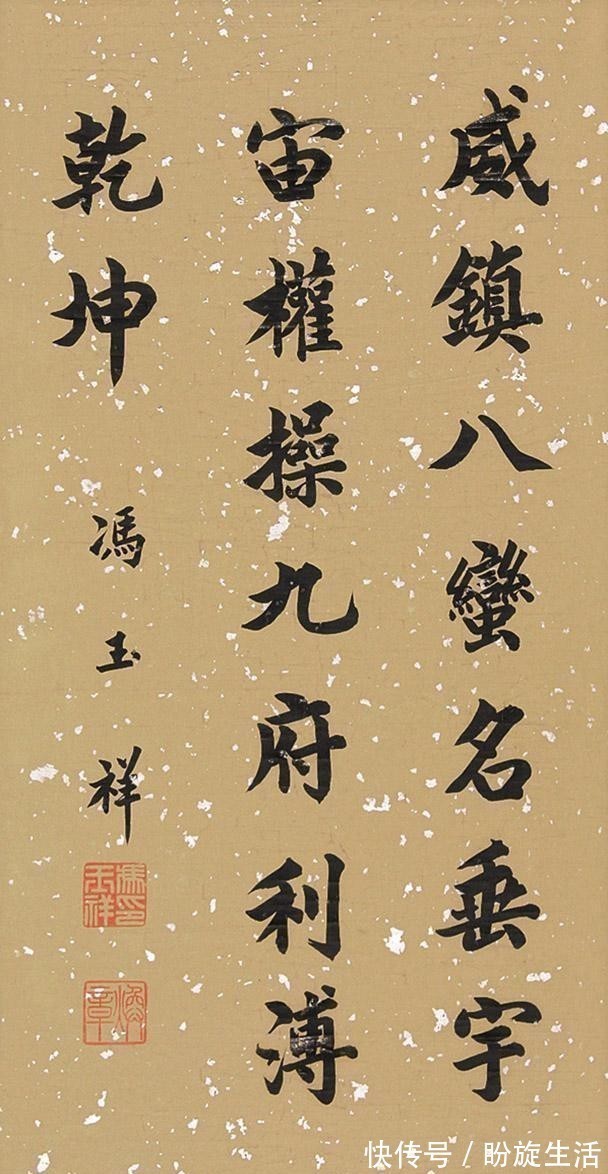 威鎮八蠻名垂宇
宙權操九府利溥
乾坤
馮玉祥
馮玉祥印
煥章
快传号／盼旋生活